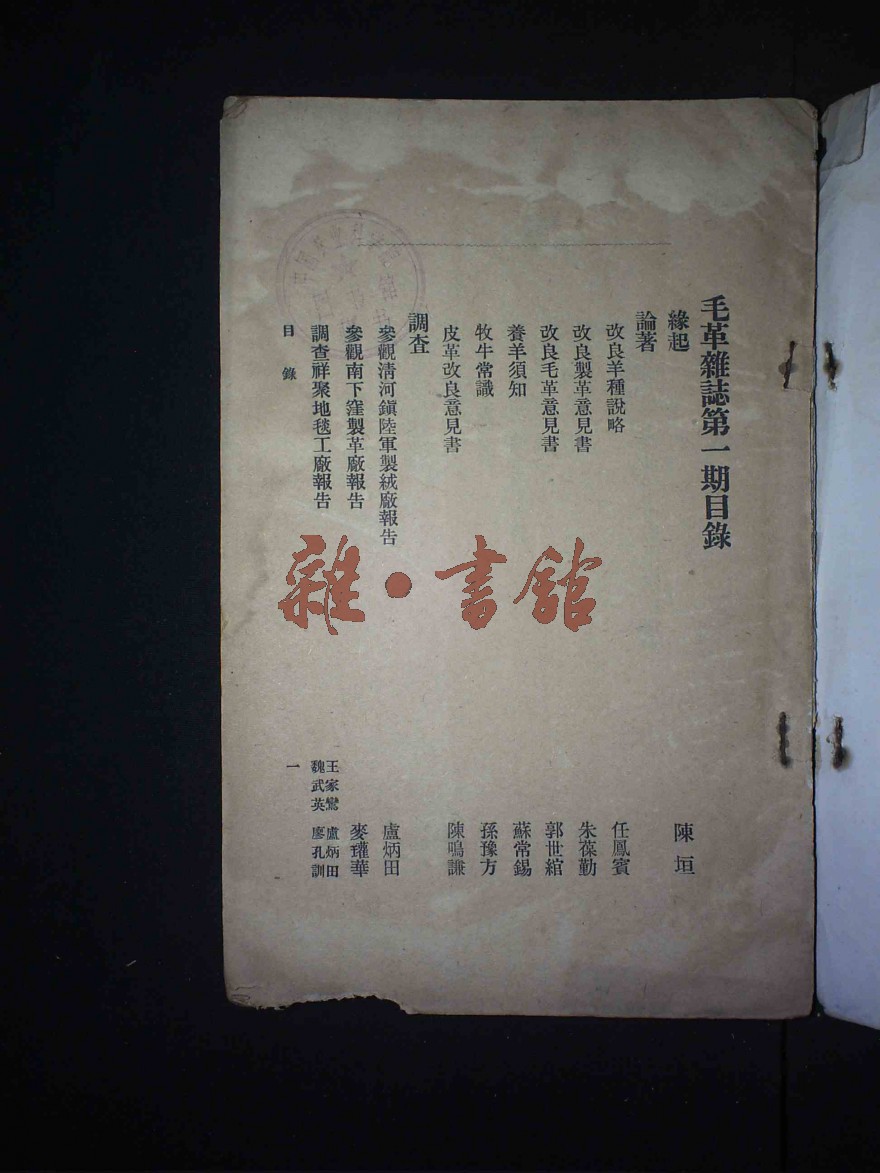 毛革雜誌第一期目錄
緣起 陳垣
論著
改良羊種說略 任鳳賓
改良製革意見書 朱葆勤
改良毛革意見書 郭世綰
養羊須知 蘇常錫
牧牛常識 孫豫方
皮革改良意見書 陳鳴謙
調查
參觀清河鎭陸軍製絨廠報告 盧炳田
參觀南下窪製革廠報告 麥瓘華
調查祥聚地毯工廠報告 王家鸞 盧炳田 魏武英 廖孔訓
目錄 一
雜·書館